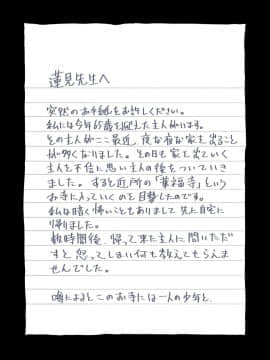 蓮見先生へ
突然のお手紙をお許しください。
私には今年65歳を迎えた主人がいます。
その主人がここ最近、夜な夜な家を出ること
が多くなりました。その日も家を出ていく
主人を不信に思い主人の後をついていき
ました。すると近所の「華福寺」という
お寺に入っていくのを目撃したのです。
私は暗く怖いこともありまして先に自宅に
帰りました。
数時間後、帰って来た主人に問いただ
すと怒ってしまい何も教えてもらえま
せんでした。
噂によるとこのお寺には一人の少年と、